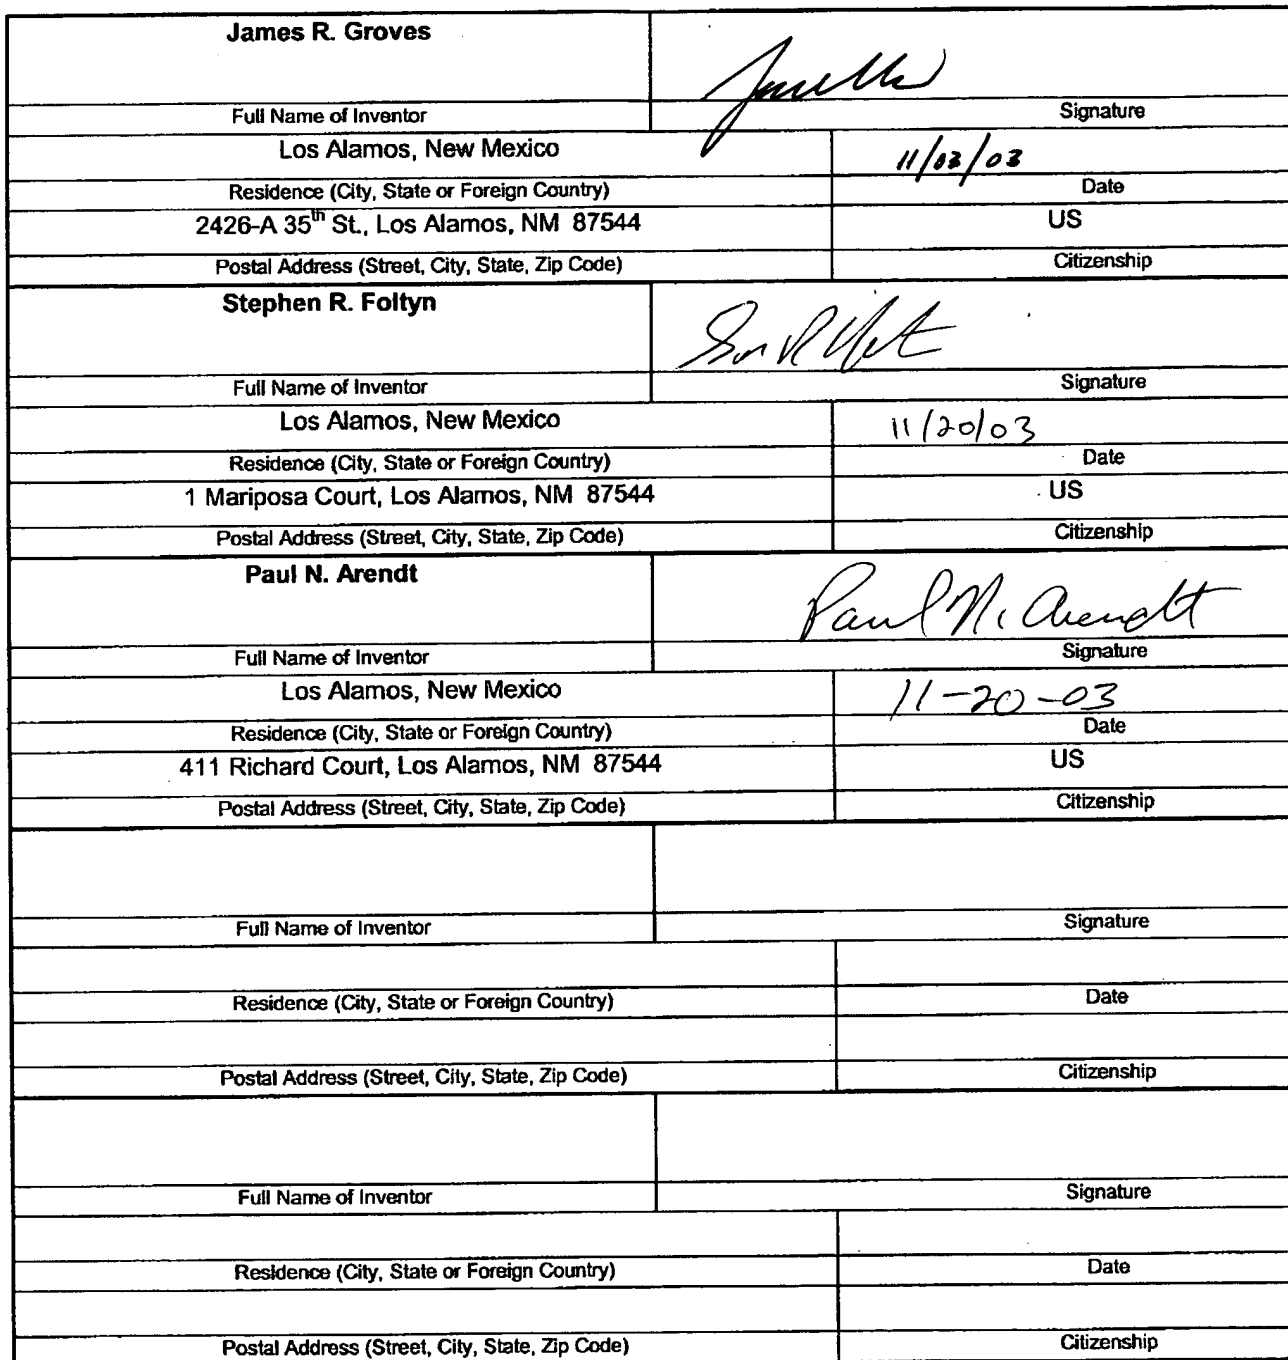 James R. Groves
Full Name of Inventor
Signature
Los Alamos, New Mexico
11/03/03
Residence (City, State or Foreign Country)
Date
2426-A 35th St., Los Alamos, NM 87544
US
Postal Address (Street, City, State, Zip Code)
Citizenship
Stephen R. Foltyn
Full Name of Inventor
Signature
Los Alamos, New Mexico
11/20/03
Residence (City, State or Foreign Country)
Date
1 Mariposa Court, Los Alamos, NM 87544
US
Postal Address (Street, City, State, Zip Code)
Citizenship
Paul N. Arendt
Paul N. Arendt
Full Name of Inventor
Signature
Los Alamos, New Mexico
11-20-03
Residence (City, State or Foreign Country)
Date
411 Richard Court, Los Alamos, NM 87544
US
Postal Address (Street, City, State, Zip Code)
Citizenship
Full Name of Inventor
Signature
Residence (City, State or Foreign Country)
Date
Postal Address (Street, City, State, Zip Code)
Citizenship
Full Name of Inventor
Signature
Residence (City, State or Foreign Country)
Date
Postal Address (Street, City, State, Zip Code)
Citizenship